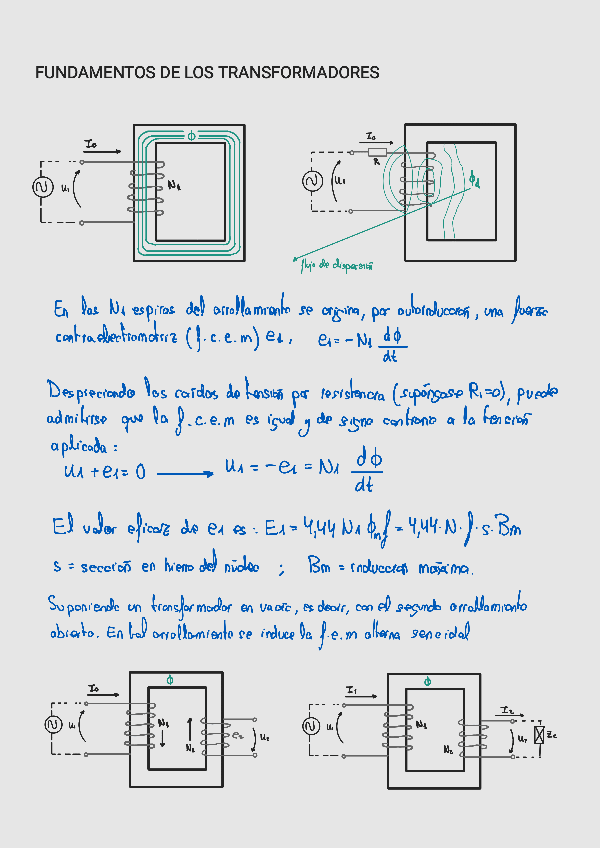 FUNDAMENTOS DE LOS TRANSFORMADORES
Φ
I0
u1
N1
I0
R
u1
Φd
flujo de dispersión
En las N1 espiras del arrollamiento se origina, por autoinducción, una fuerza
contraelectromotriz (f.c.e.m) e1, e1 = -N1 dΦ/dt
Despreciando las caídas de tensión por resistencia (supóngase R1=0), puede
admitirse que la f.c.e.m es igual y de signo contrario a la tensión
aplicada:
u1 + e1 = 0 → u1 = -e1 = N1 dΦ/dt
El valor eficaz de e1 es: E1 = 4,44 N1 Φm f = 4,44·N·f·s·Bm
s = sección en hierro del núcleo ; Bm = inducción máxima.
Suponiendo un transformador en vacío, es decir, con el segundo arrollamiento
abierto. En tal arrollamiento se induce la f.e.m alterna senoidal
Φ
I0
u1
N1
N2
e2
u2
Φ
I1
u1
N1
N2
I2
u2
Zc